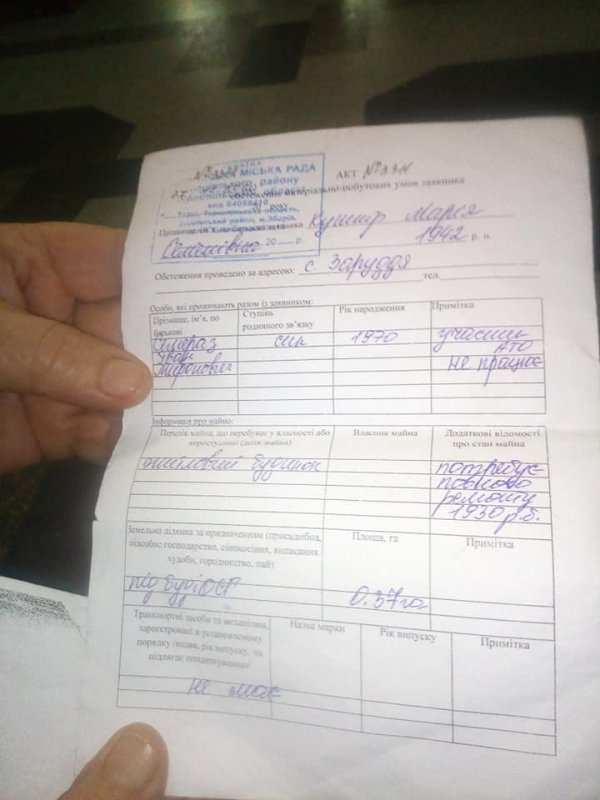 АКТ №334
МІСЬКА РАДА
району
Тернопільської області
код
обстеження матеріально-побутових умов заявника
року
Прізвище заявника Кушнір Марія
20 р. 1942 р. н.
Обстеження проведено за адресою: с. Заруддя тел.
Особи, які проживають разом із заявником:
Прізвище, ім'я, по батькові Ступінь родинного зв'язку Рік народження Примітка
син 1970 учасник
Іван АТО
Миронович не працює
Інформація про майно:
Перелік майна, що перебуває у власності або Власник майна Додаткові відомості про стан майна
житловий будинок потребує
повного
ремонту
1930 р.б.
Земельна ділянка за призначенням (присадибна, підсобне господарство, сінокосіння, випасання худоби, городництво, пай) Площа, га Примітка
під буд і ОСГ 0.37га
Транспортні засоби та механізми, Назва марки Рік випуску Примітка
зареєстровані в установленому
порядку /назва, рік випуску, чи
підлягає оподаткуванню/
не має